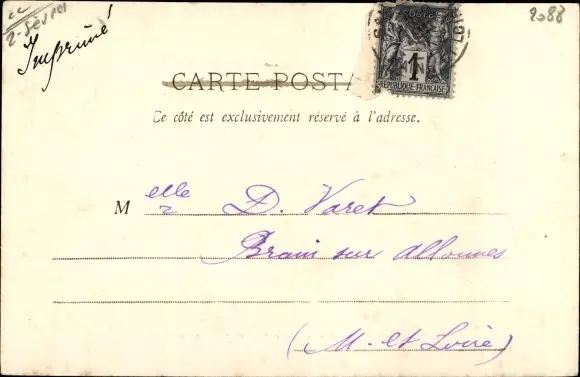 2088
Imprimé
POSTES
1
RÉPUBLIQUE FRANÇAISE
CARTE POSTA
Ce côté est exclusivement réservé à l'adresse.
Melle D. Varet
Brain sur Allonnes
(M. et Loire)